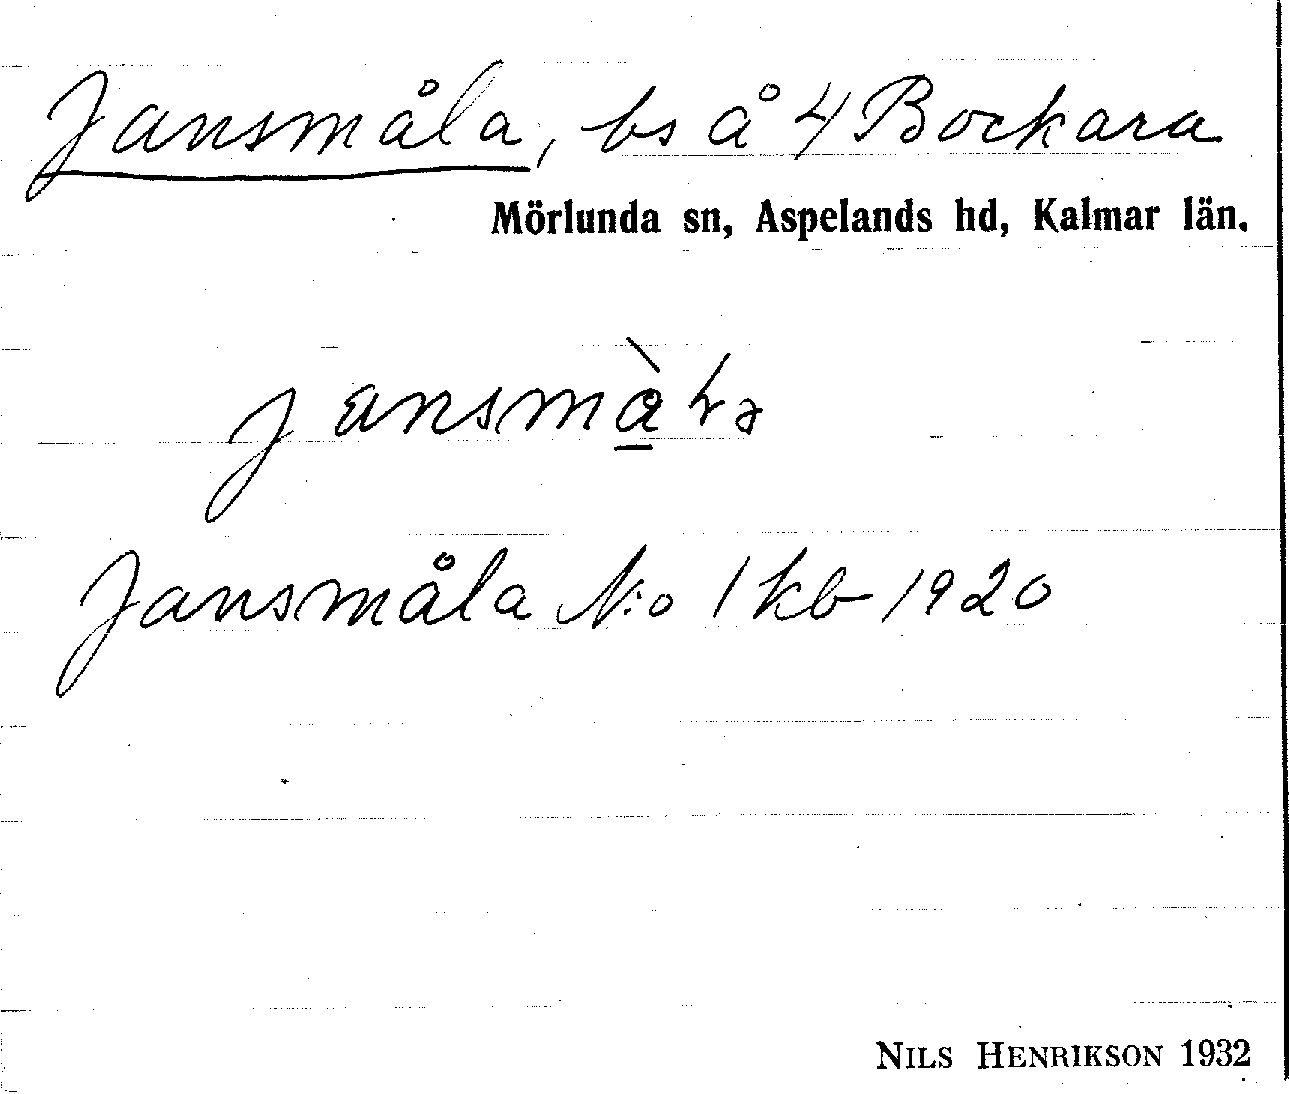 Jansmåla, bs å 4 Bockara
Mörlunda sn, Aspelands hd, Kalmar län.
Jansmåla N:o 1 kb 1920
NILS HENRIKSON 1932